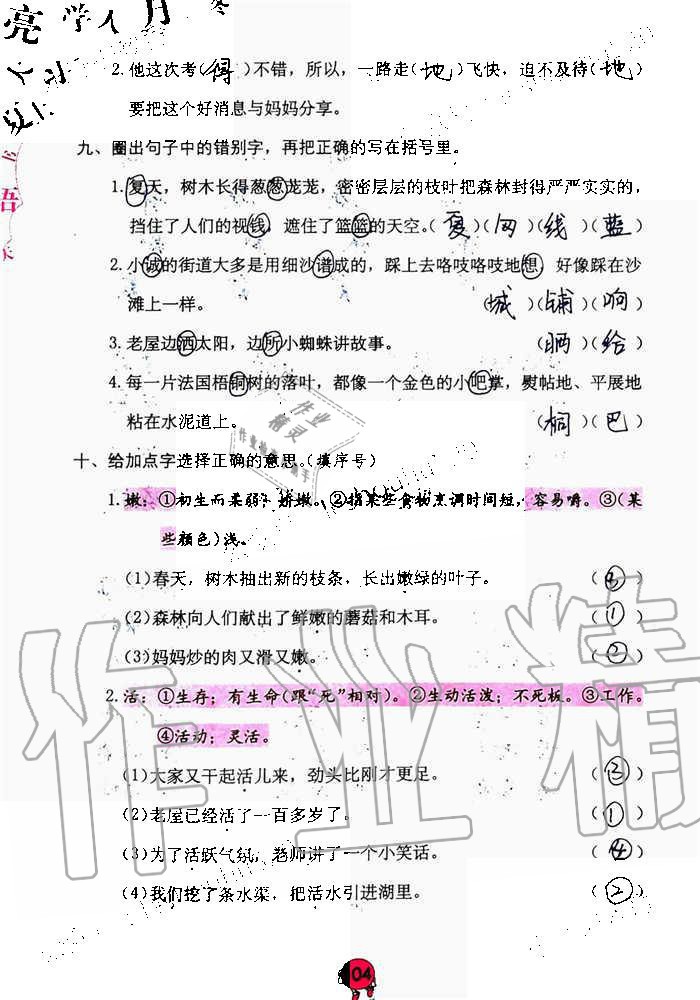 亮 学人 月
2. 他这次考( 得 )不错，所以，一路走( 地 )飞快，迫不及待( 地 )
要把这个好消息与妈妈分享。
九、圈出句子中的错别字，再把正确的写在括号里。
1. 夏天，树木长得葱葱茏茏，密密层层的枝叶把森林封得严严实实的，
挡住了人们的视钱，遮住了篮篮的天空。( 夏 )( 网 )( 线 )( 蓝 )
2. 小诚的街道大多是用细沙谱成的，踩上去咯吱咯吱地想，好像踩在沙
滩上一样。 ( 城 )( 铺 )( 响 )
3. 老屋边洒太阳，边所小蜘蛛讲故事。 ( 晒 )( 给 )
4. 每一片法国梧铜树的落叶，都像一个金色的小吧掌，熨帖地、平展地
粘在水泥道上。 ( 桐 )( 巴 )
作业
精灵
十、给加点字选择正确的意思。(填序号)
1. 嫩：①初生而柔弱；娇嫩。②指某些食物烹调时间短，容易嚼。③(某
些颜色)浅。
(1)春天，树木抽出新的枝条，长出嫩绿的叶子。 ( ③ )
(2)森林向人们献出了鲜嫩的蘑菇和木耳。 ( ① )
(3)妈妈炒的肉又滑又嫩。 ( ② )
2. 活：①生存；有生命(跟“死”相对)。②生动活泼；不死板。③工作。
④活动；灵活。
(1)大家又干起活儿来，劲头比刚才更足。 ( ③ )
(2)老屋已经活了一百多岁了。 ( ① )
(3)为了活跃气氛，老师讲了一个小笑话。 ( ④ )
(4)我们挖了条水渠，把活水引进湖里。 ( ② )
作业精
04